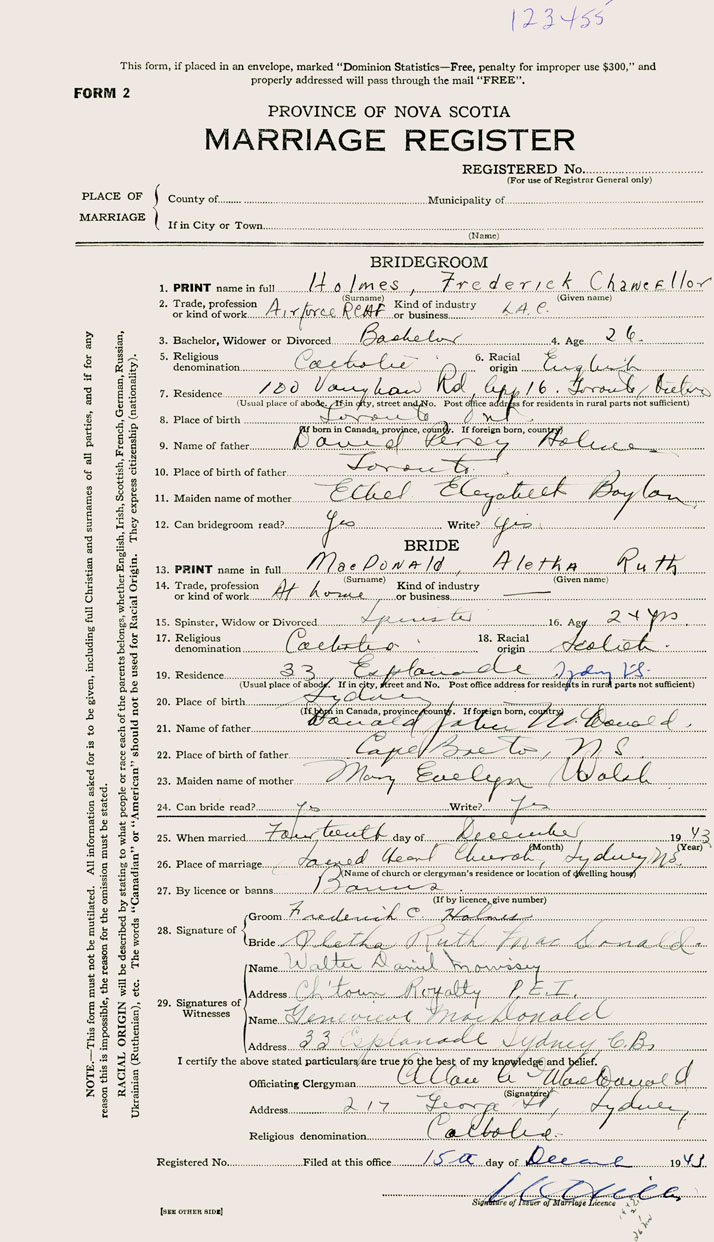 123455
This form, if placed in an envelope, marked “Dominion Statistics—Free, penalty for improper use $300,” and
properly addressed will pass through the mail “FREE”.
FORM 2
PROVINCE OF NOVA SCOTIA
MARRIAGE REGISTER
REGISTERED No.
(For use of Registrar General only)
PLACE OF MARRIAGE
County of Municipality of
If in City or Town
(Name)
BRIDEGROOM
1. PRINT name in full Holmes, Frederick Chancellor
(Surname) (Given name)
2. Trade, profession or kind of work Airforce RCAF Kind of industry or business L.A.C.
3. Bachelor, Widower or Divorced Bachelor 4. Age 26.
5. Religious denomination Catholic 6. Racial origin English
7. Residence 100 Vaughan Rd, App 16. Toronto,
(Usual place of abode. If in city, street and No. Post office address for residents in rural parts not sufficient)
8. Place of birth Toronto Ont
(If born in Canada, province, county. If foreign born, country)
9. Name of father David Percy Holmes
10. Place of birth of father Toronto.
11. Maiden name of mother Ethel Elezabeth Boylan
12. Can bridegroom read? Yes Write? Yes
BRIDE
13. PRINT name in full MacDonald, Aletha Ruth
(Surname) (Given name)
14. Trade, profession or kind of work At home Kind of industry or business —
15. Spinster, Widow or Divorced Spinster 16. Age 24 yrs.
17. Religious denomination Catholic 18. Racial origin Scotch.
19. Residence 33 Esplanade
(Usual place of abode. If in city, street and No. Post office address for residents in rural parts not sufficient)
20. Place of birth Sydney
(If born in Canada, province, county. If foreign born, country)
21. Name of father Donald John McDonald.
22. Place of birth of father Cape Breto, N S.
23. Maiden name of mother Mary Evelyn Walsh
24. Can bride read? yes Write? Yes
25. When married Fourteenth day of December 1943
(Month) (Year)
26. Place of marriage Sacred Heart Church, Sydney N.S.
(Name of church or clergyman's residence or location of dwelling house)
27. By licence or banns Banns
(If by licence, give number)
28. Signature of
Groom Frederick C. Holmes
Bride Aletha Ruth MacDonald.
29. Signatures of Witnesses
Name Walter Daniel Morrissey
Address Ch'town Royalty P.E.I.
Name Genevieve MacDonald
Address 33 Esplanade Sydney C.B.
I certify the above stated particulars are true to the best of my knowledge and belief.
Officiating Clergyman Allan A MacDonald
(Signature)
Address 217 George St, Sydney,
Religious denomination Catholic
Registered No. Filed at this office 15th day of 1943
Signature of Issuer of Marriage Licence
[SEE OTHER SIDE]
NOTE.—This form must not be mutilated. All information asked for is to be given, including full Christian and surnames of all parties, and if for any
reason this is impossible, the reason for the omission must be stated.
RACIAL ORIGIN will be described by stating to what people or race each of the parents belongs, whether English, Irish, Scottish, French, German, Russian,
Ukrainian (Ruthenian), etc. The words “Canadian” or “American” should not be used for Racial Origin. They express citizenship (nationality).